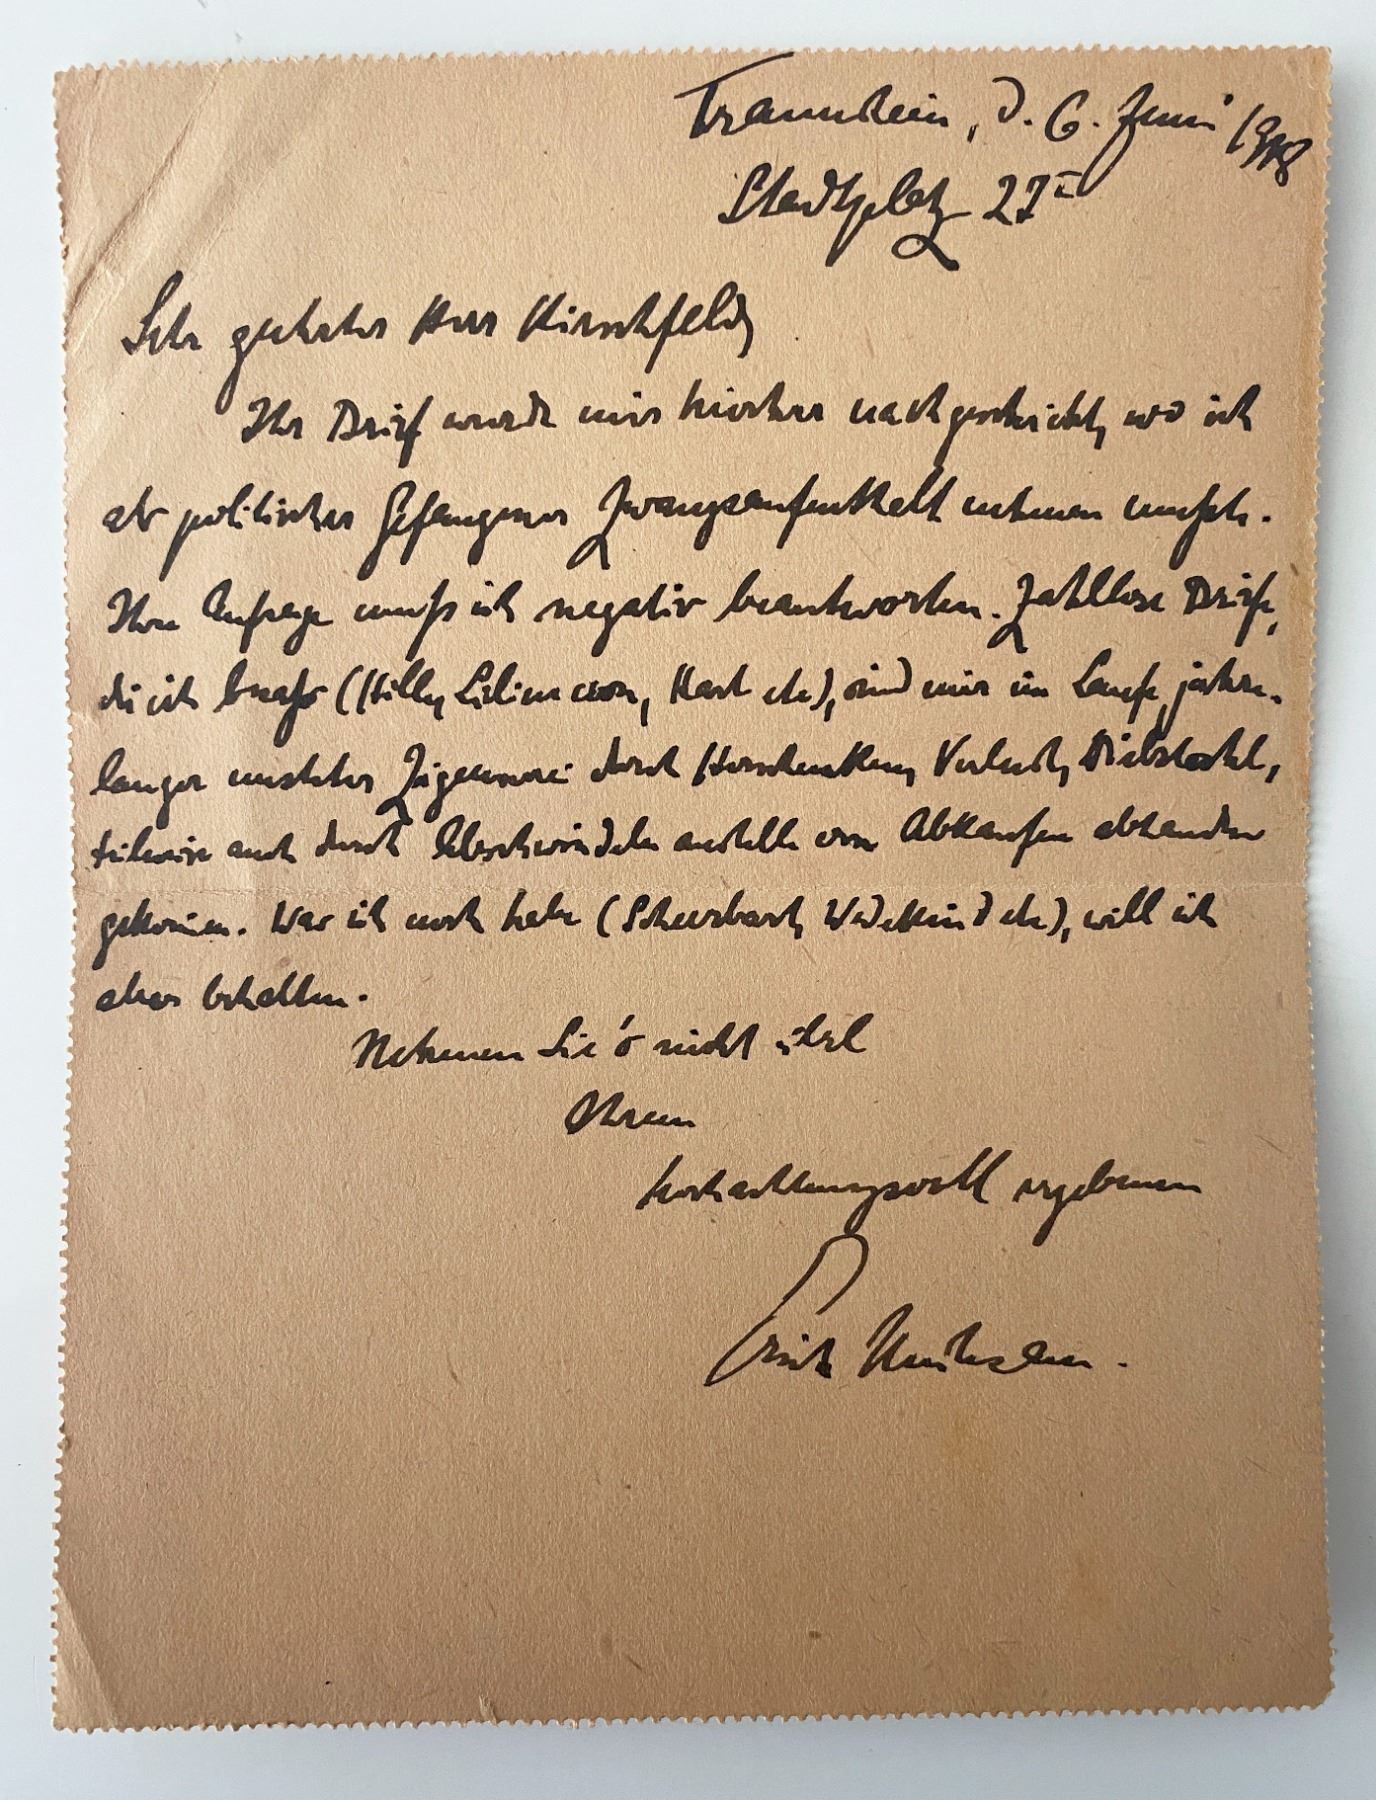 Traunstein, d. 6. Juni 1918
Stadtplatz 27 I
Sehr geehrter Herr Hirschfeld,
Ihr Brief wurde mir hierher nachgeschickt, wo ich
als politischer Gefangener Zwangsaufenthalt nehmen mußte.
Ihre Anfrage muß ich negativ beantworten. Zahllose Briefe,
die ich besaß (Hille, Liliencron, Hart etc), sind mir im Laufe jahre-
langer unsteter Zigeunerei durch Verschenken, Verlust, Diebstahl,
teilweise auch durch Abschwindeln anstelle von Abkaufen abhanden
gekommen. Was ich noch habe (Scheerbart, Wedekind etc), will ich
aber behalten.
Nehmen Sie's nicht übel
Ihrem
hochachtungsvoll ergebenen
Erich Mühsam.